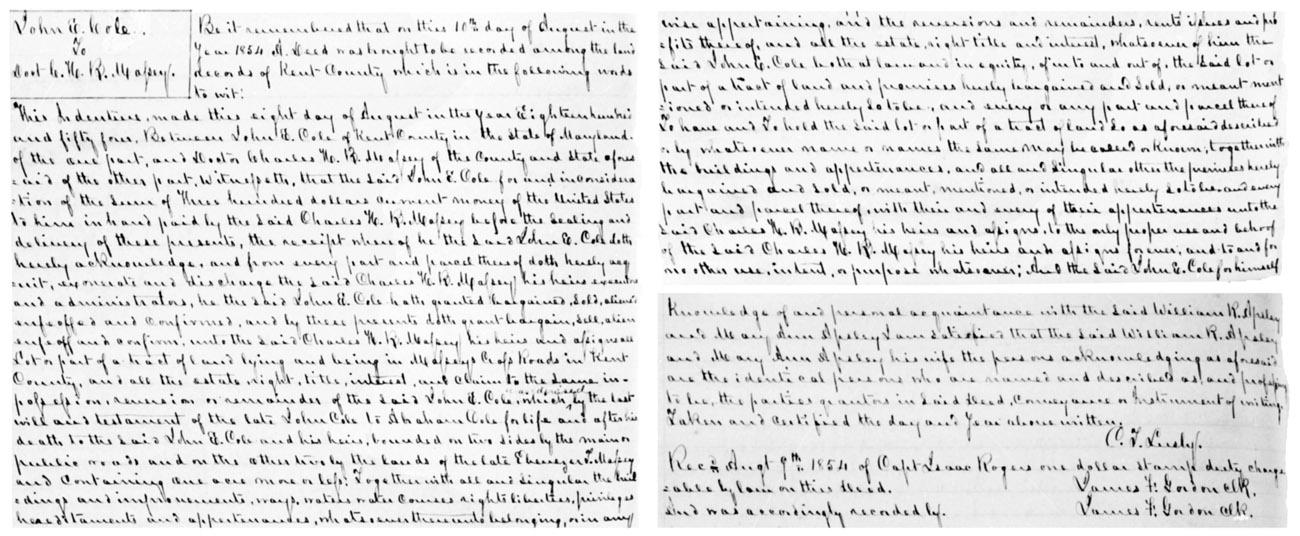 John E. Cole..
To
Doct C. H. B. Massey.
Be it remembered that on this 10th day of August in the
Year 1854 A Deed was brought to be recorded among the land
records of Kent County which is in the following words
to wit:
This Indenture, made this eight day of August in the Year Eighteen hundred
and fifty four, Between John E. Cole of Kent County in the State of Maryland
of the one part, and Doctor Charles H. B. Massey of the County and State afore
said of the other part, Witnesseth, that the said John E. Cole for and in considera
ction of the sum of Three hundred dollars current money of the United States
to him in hand paid by the said Charles H. B. Massey before the sealing and
delivery of these presents, the receipt whereof he the said John E. Cole doth
hereby acknowledge, and from every part and parcel thereof doth hereby acq
uit, exonerate and discharge the said Charles H. B. Massey his heirs executors
and administrators, he the said John E. Cole hath granted bargained, sold, aliened
enfeoffed and confirmed, and by these presents doth grant bargain, sell, alien
enfeoff and confirm, unto the said Charles H. B. Massey his heirs and assigns all
Lot or part of a tract of land lying and being in Masseys Cross Roads in Kent
County, and all the estate, right, title, interest, and claim to the same in
possession, reversion or remainder of the said John E. Cole by the last
will and testament of the late John Cole to Abraham Cole for life and after his
death to the said John E. Cole and his heirs, bounded on two sides by the main or
public roads and on the other two by the lands of the late Ebenezer T. Massey
and containing one acre more or less: Together with all and singular the buil
dings and improvements, ways, waters water courses rights liberties, privileges
hereditaments and appertenances, whatsoever thereunto belonging, or in any
wise appertaining, and the reversions and remainders, rents issues and pro
fits thereof, and all the estate, right title and interest, whatsoever of him the
said John E. Cole both at law and in equity, of into and out of, the said lot or
part of a tract of land and premises hereby bargained and sold, or meant ment
cioned or intended hereby so to be, and every or any part and parcel thereof
To have and To hold the said lot or part of a tract of land so as aforesaid described
or by whatsoever name or names the same may be called or known, together with
the buildings and appertenances, and all and singular other the premises hereby
bargained and sold, or meant, mentioned, or intended hereby so to be, and every
part and parcel thereof, with their and every of their appertenances unto the
said Charles H. B. Massey his heirs and assigns, to the only proper use and behoof
of the said Charles H. B. Massey his heirs and assigns forever, and to and for
no other use, intent, or purpose whatsoever; And the said John E. Cole for himself
Knowledge of and personal acquaintance with the said William R. Apsley
and Mary Ann Apsley I am satisfied that the said William R. Apsley
and Mary Ann Apsley his wife the persons acknowledging as aforesaid
are the identical persons who are named and described as, and professing
to be, the parties grantors in said Deed, Conveyance or Instrument of writing.
Taken and certified the day and Year above written,
Recd Augt 9th 1854 of Capt Isaac Rogers one dollar stamp duty charge
able by law on this Deed. James F. Gordon Clk.
And was accordingly recorded by. James F. Gordon Clk.